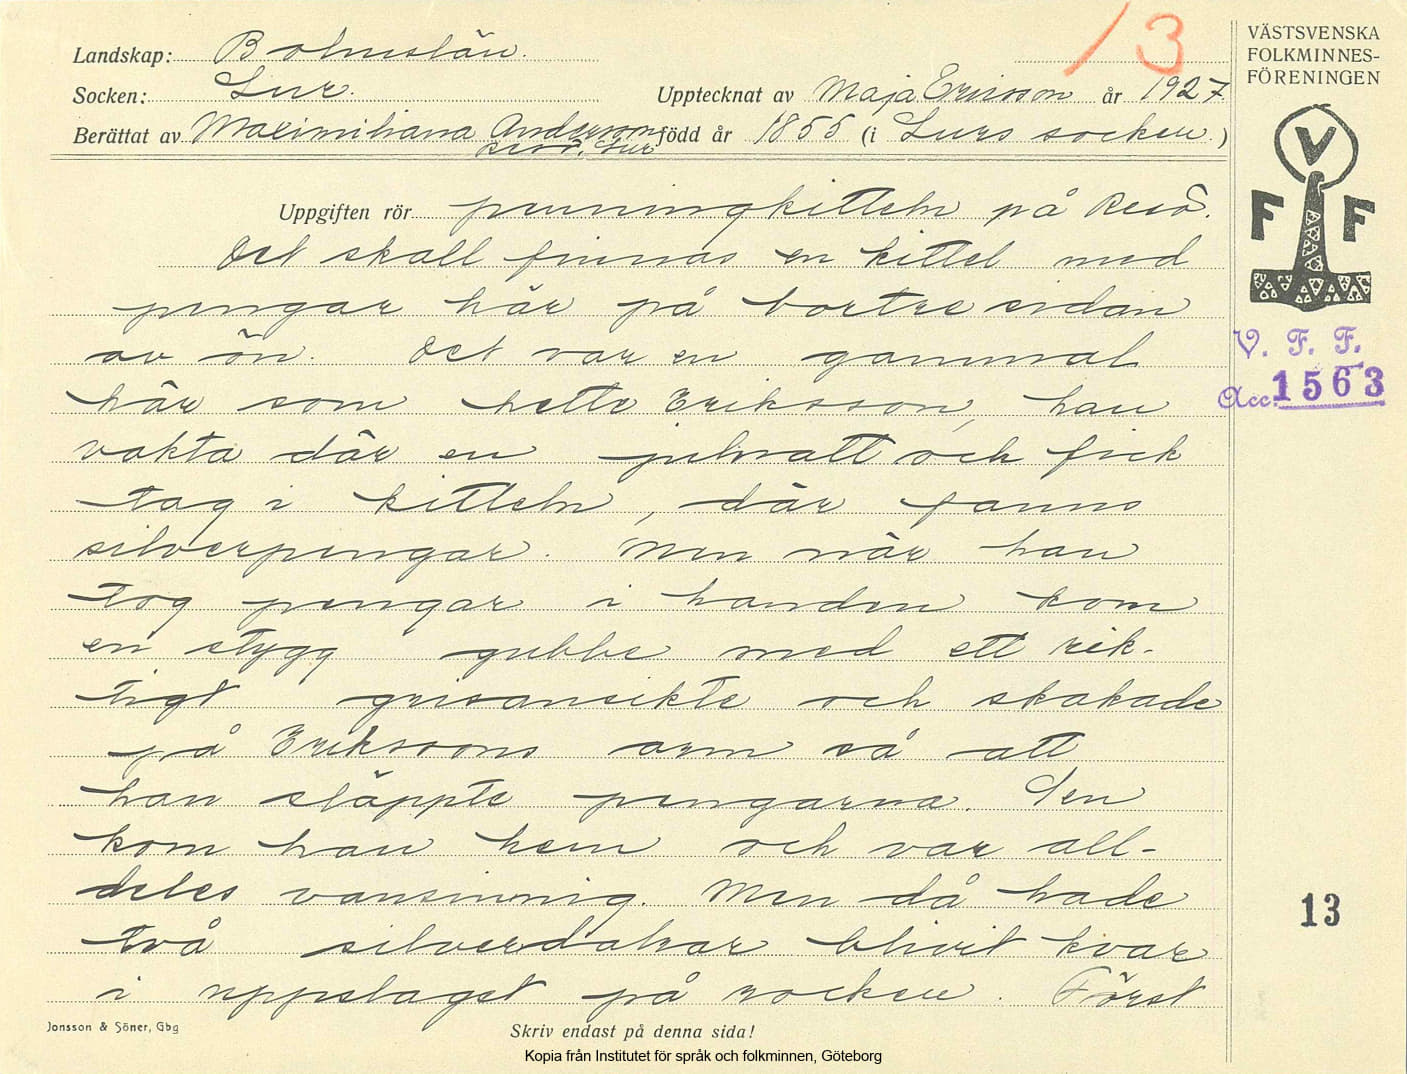 13
Landskap: Bohuslän.
Socken: Lur.
Upptecknat av Maja Ericson år 1927.
Berättat av Maximiliana Anderson, född år 1855 (i Lurs socken.)
Resö, Lur
VÄSTSVENSKA
FOLKMINNES-
FÖRENINGEN
V
F F
V. F. F.
Acc. 1563
Uppgiften rör penningkitteln på Resö.
Det skall finnas en kittel med
pengar här på bortre sidan
av ön. Det var en gammal
här som hette Eriksson, han
vakta där en julnatt och fick
tag i kitteln, där fanns
silverpengar. Men när han
tog pengar i handen kom
en stygg gubbe med ett rik-
tigt grisansikte och skakade
på Erikssons arm så att
han släppte pengarna. Sen
kom han hem och var all-
deles vansinnig. Men då hade
två silverdalrar blivit kvar
i uppslaget på rocken. Först
13
Jonsson & Söner, Gbg
Skriv endast på denna sida!
Kopia från Institutet för språk och folkminnen, Göteborg